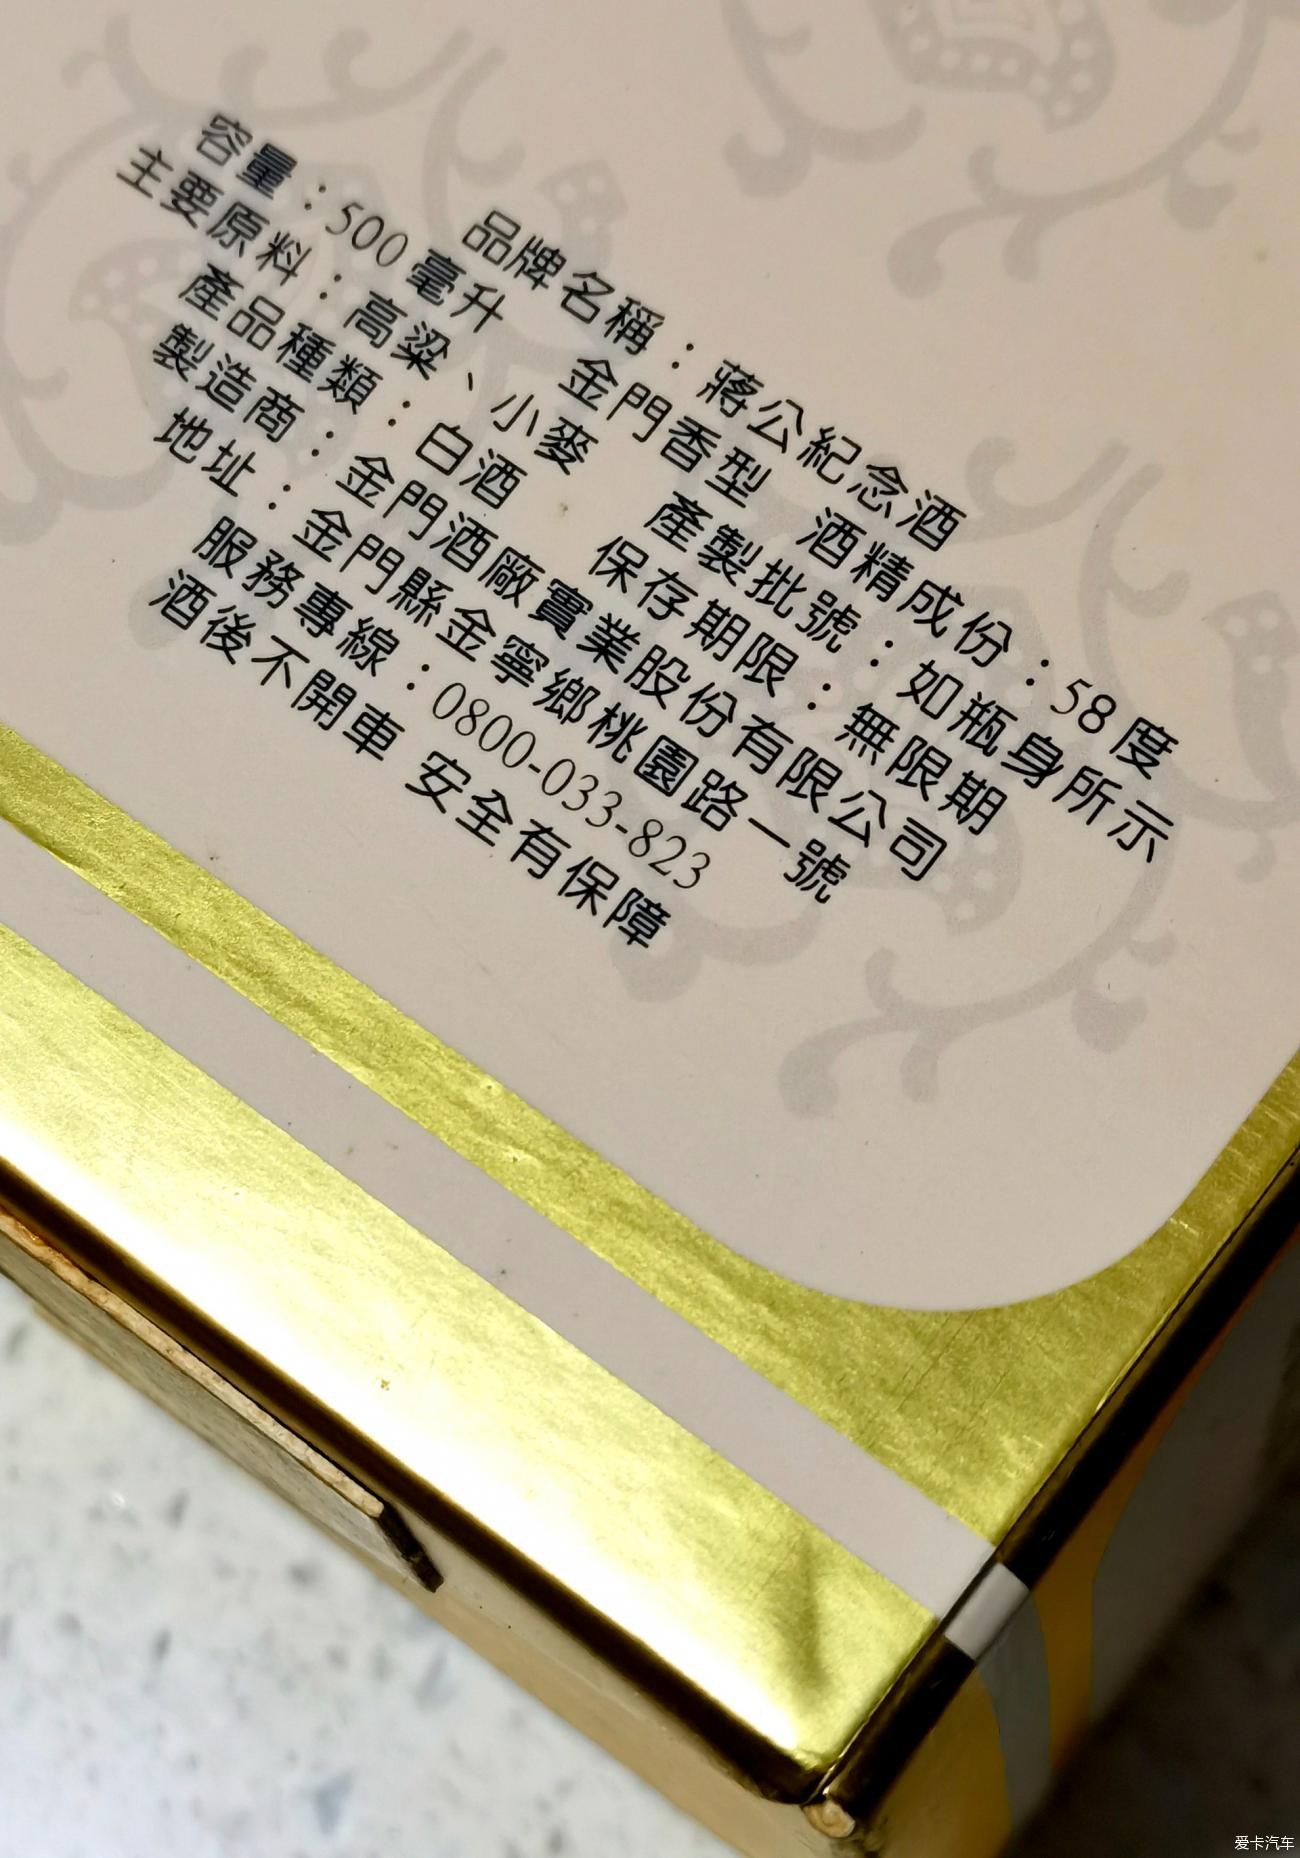 品牌名稱：蔣公紀念酒
容量：500 毫升 金門香型 酒精成份：58 度
主要原料：高粱、小麥 產製批號：如瓶身所示
產品種類：白酒 保存期限：無限期
製造商：金門酒廠實業股份有限公司
地址：金門縣金寧鄉桃園路一號
服務專線：0800-033-823
酒後不開車 安全有保障
爱卡汽车